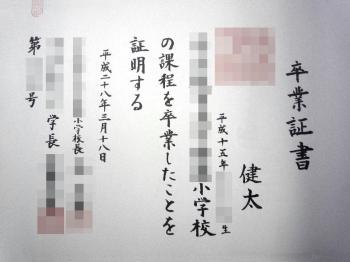 卒業証書
健太
平成十五年
生
小学校
の課程を卒業したことを
証明する
平成二十八年三月十八日
小学校長
学長
第
号